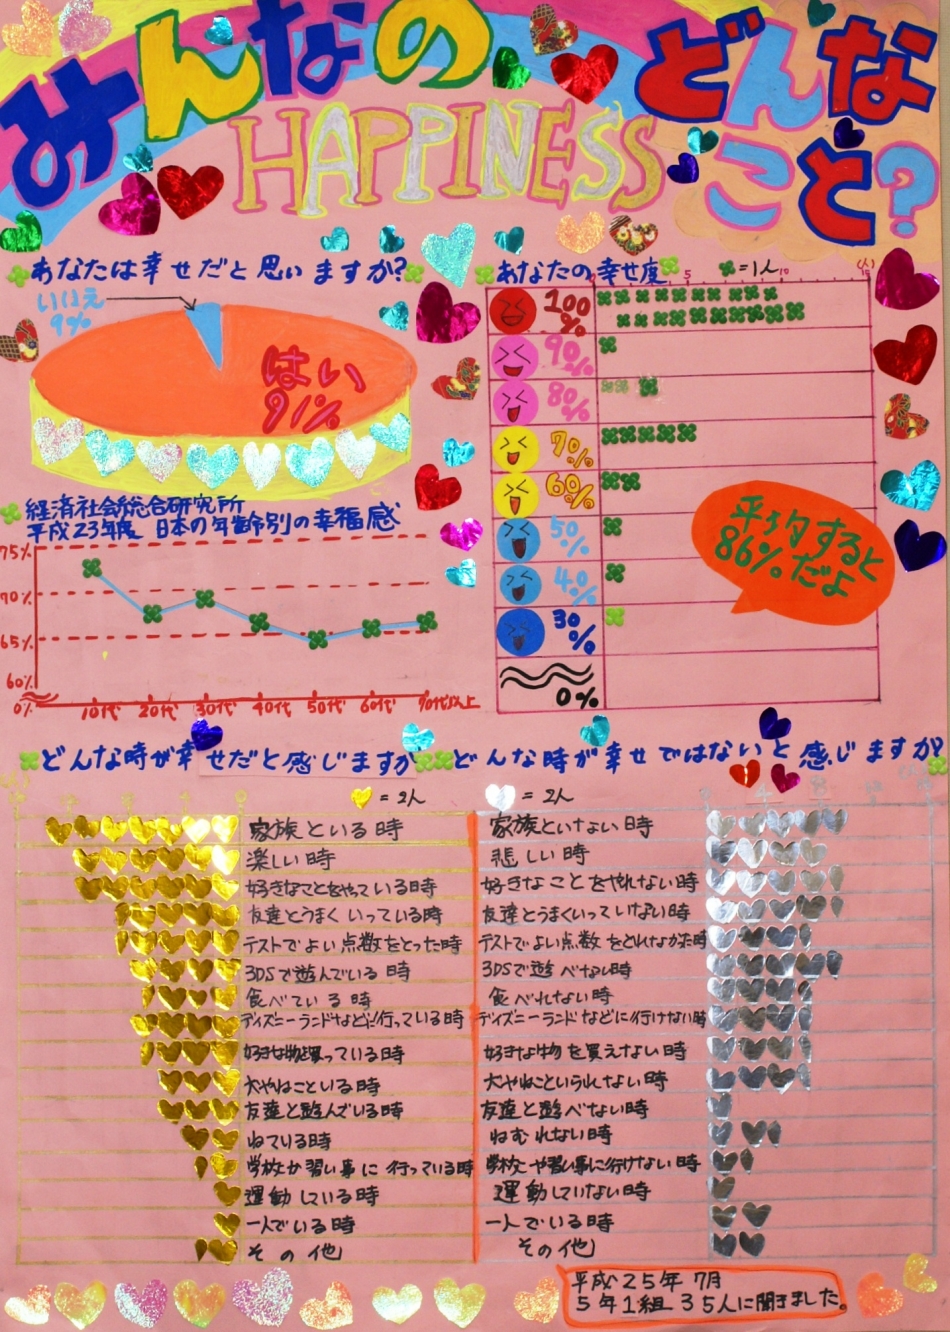 みんなの
どんな
HAPPINESS
こと?
あなたは幸せだと思いますか?
いいえ
9%
はい
91%
あなたの幸せ度
=1人
5
10
15
(人)
100%
90%
80%
70%
60%
50%
40%
30%
0%
平均すると
86%だよ
経済社会総合研究所
平成23年度 日本の年齢別の幸福感
75%
70%
65%
60%
0%
10代 20代 30代 40代 50代 60代 70代以上
どんな時が幸せだと感じますか
どんな時が幸せではないと感じますか
=2人
=2人
家族といる時
家族といない時
楽しい時
悲しい時
好きなことをやっている時
好きなことをやれない時
友達とうまくいっている時
友達とうまくいっていない時
テストでよい点数をとった時
テストでよい点数をとれなかた時
3DSで遊んでいる時
3DSで遊べない時
食べている時
食べれない時
ディズニーランドなどに行っている時
ディズニーランドなどに行けない時
好きな物買っている時
好きな物を買えない時
犬やねこといる時
犬やねこといられない時
友達と遊んでいる時
友達と遊べない時
ねている時
ねむれない時
学校か習い事に行っている時
学校や習い事に行けない時
運動している時
運動していない時
一人でいる時
一人でいる時
その他
その他
平成25年7月
5年1組35人に聞きました。